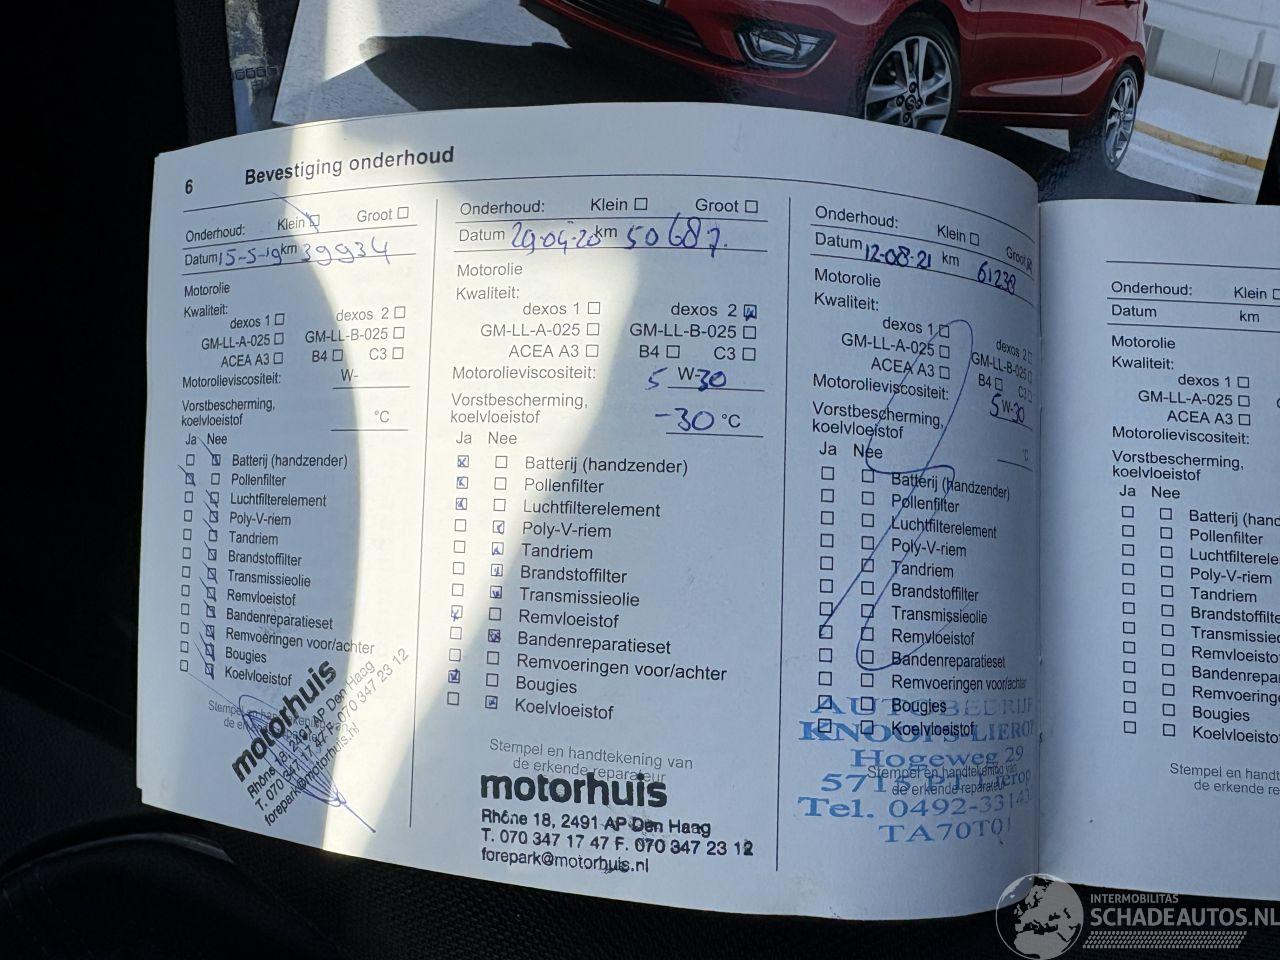 6 Bevestiging onderhoud
Onderhoud: Klein Groot
Datum 15-5-19 km 39934
Motorolie
Kwaliteit:
dexos 1 dexos 2
GM-LL-A-025 GM-LL-B-025
ACEA A3 B4 C3
Motorolieviscositeit: W-
Vorstbescherming,
koelvloeistof °C
Ja Nee
Batterij (handzender)
Pollenfilter
Luchtfilterelement
Poly-V-riem
Tandriem
Brandstoffilter
Transmissieolie
Remvloeistof
Bandenreparatieset
Remvoeringen voor/achter
Bougies
Koelvloeistof
motorhuis
Rhône 18, 2491 AP Den Haag
T. 070 347 17 47 F. 070 347 23 12
forepark@motorhuis.nl
Onderhoud: Klein Groot
Datum 29-04-20 km 50687.
Motorolie
Kwaliteit:
dexos 1 dexos 2
GM-LL-A-025 GM-LL-B-025
ACEA A3 B4 C3
Motorolieviscositeit: 5 W-30
Vorstbescherming,
koelvloeistof -30 °C
Ja Nee
Batterij (handzender)
Pollenfilter
Luchtfilterelement
Poly-V-riem
Tandriem
Brandstoffilter
Transmissieolie
Remvloeistof
Bandenreparatieset
Remvoeringen voor/achter
Bougies
Koelvloeistof
Stempel en handtekening van
de erkende reparateur
motorhuis
Rhône 18, 2491 AP Den Haag
T. 070 347 17 47 F. 070 347 23 12
forepark@motorhuis.nl
Onderhoud: Klein Groot
Datum 12-08-21 km 61238
Motorolie
Kwaliteit:
dexos 1 dexos 2
GM-LL-A-025 GM-LL-B-025
ACEA A3 B4
Motorolieviscositeit: 5 W-30
Vorstbescherming,
koelvloeistof °C
Ja Nee
Batterij (handzender)
Pollenfilter
Luchtfilterelement
Poly-V-riem
Tandriem
Brandstoffilter
Transmissieolie
Remvloeistof
Bandenreparatieset
Remvoeringen voor/achter
Bougies
Koelvloeistof
Stempel en handtekening van
de erkende reparateur
KNOOPS-LIEROP
Hogeweg 29
5715 Lierop
Tel. 0492-33143
TA70T01
Onderhoud: Klein
Datum km
Motorolie
Kwaliteit:
dexos 1
GM-LL-A-025
ACEA A3
Motorolieviscositeit:
Vorstbescherming,
koelvloeistof
Ja Nee
Batterij (hand
Pollenfilter
Luchtfilterele
Poly-V-riem
Tandriem
Brandstoffilte
Transmissie
Remvloeisto
Bandenrepar
Remvoering
Bougies
Koelvloeisto
Stempel en handte
de erkende re
INTERMOBILITAS
SCHADEAUTOS.NL